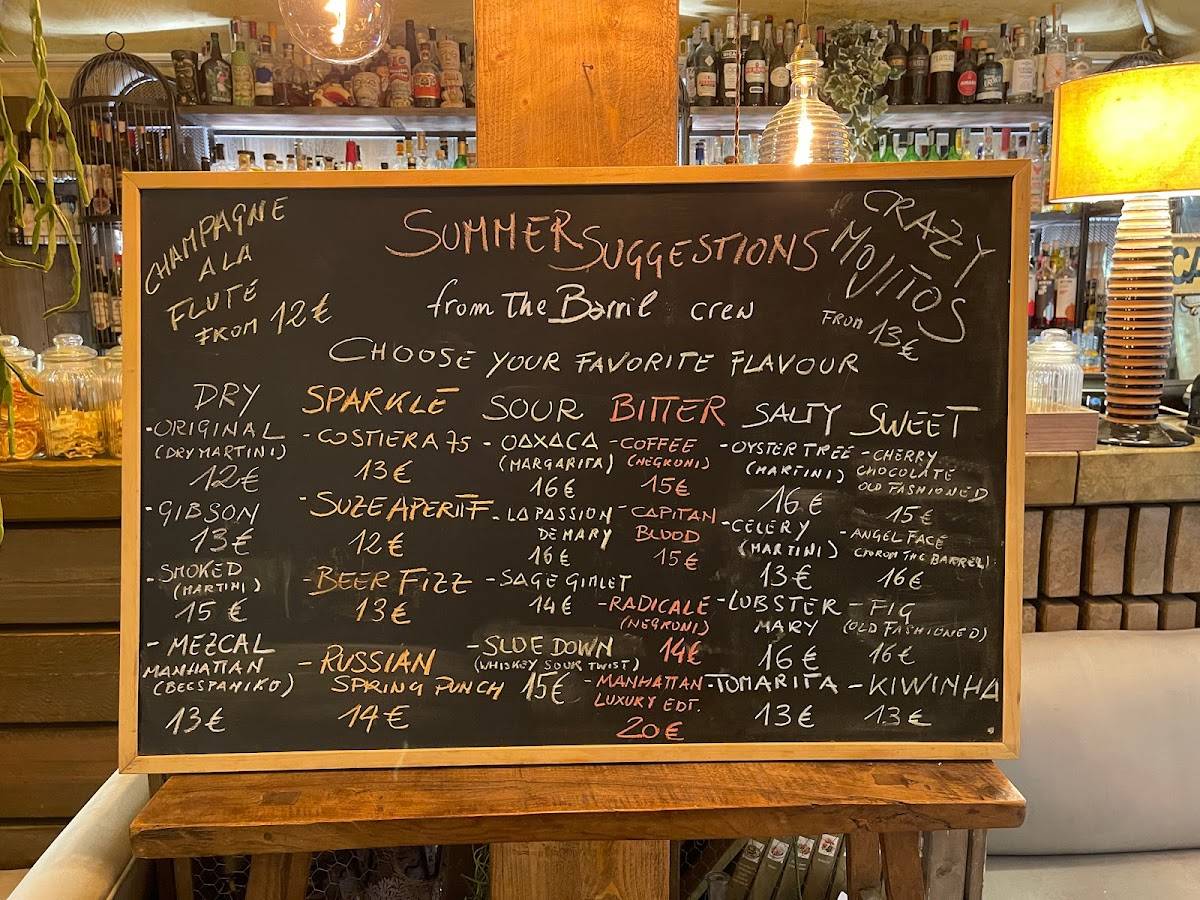 CHAMPAGNE
A LA
FLUTE
FROM 12€
SUMMER SUGGESTIONS
from The Barril crew
CRAZY
MOJITOS
FROM 13€
CHOOSE YOUR FAVORITE FLAVOUR
DRY
-ORIGINAL
(DRY MARTINI)
12€
-GIBSON
13€
-SMOKED
(MARTINI)
15€
-MEZCAL
MANHATTAN
(BEESPANIKO)
13€
SPARKLE
-COSTIERA 75
13€
-SUZE APERITIF
12€
-BEER FIZZ
13€
-RUSSIAN
SPRING PUNCH
14€
SOUR
-OAXACA
(MARGARITA)
16€
-LA PASSION
DE MARY
16€
-SAGE GIMLET
14€
-SLOE DOWN
(WHISKEY SOUR TWIST)
15€
BITTER
-COFFEE
(NEGRONI)
15€
-CAPITAN
BLOOD
15€
-RADICALE
(NEGRONI)
14€
-MANHATTAN
LUXURY EDT.
20€
SALTY
-OYSTER TREE
(MARTINI)
16€
-CELERY
(MARTINI)
13€
-LOBSTER
MARY
16€
-TOMARITA
13€
SWEET
-CHERRY
CHOCOLATE
OLD FASHIONED
15€
-ANGEL FACE
(FROM THE BARREL)
16€
-FIG
(OLD FASHIONED)
16€
-KIWINHA
13€